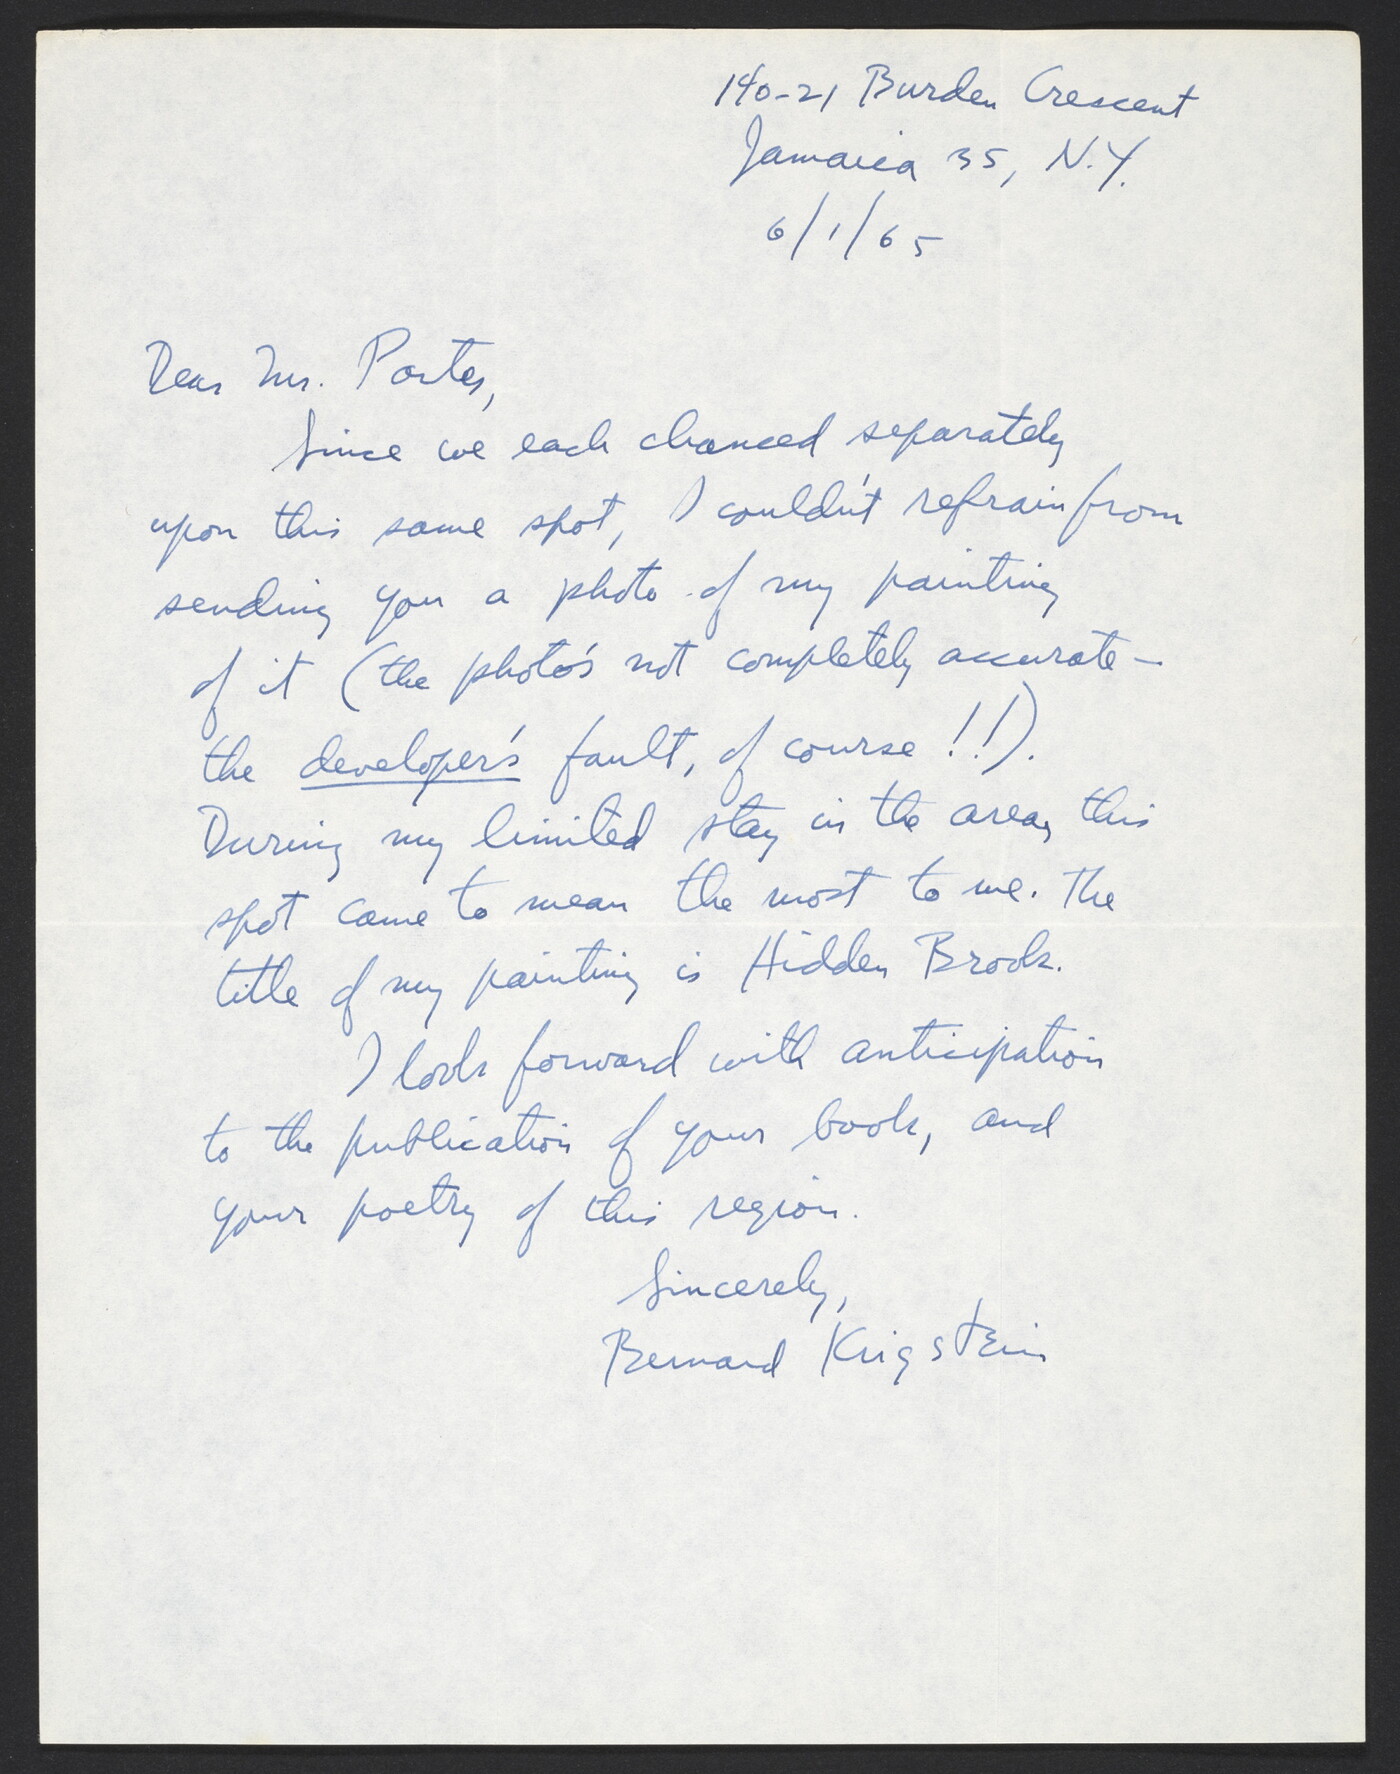 140-21 Burden Crescent
Jamaica 35, N.Y.
6/1/65
Dear Mr. Porter,
Since we each chanced separately
upon this same spot, I couldn't refrain from
sending you a photo of my painting
of it (the photo's not completely accurate —
the developer's fault, of course!!).
During my limited stay in the area, this
spot came to mean the most to me. The
title of my painting is Hidden Brook.
I look forward with anticipation
to the publication of your book, and
your poetry of this region.
Sincerely,
Bernard Krigstein